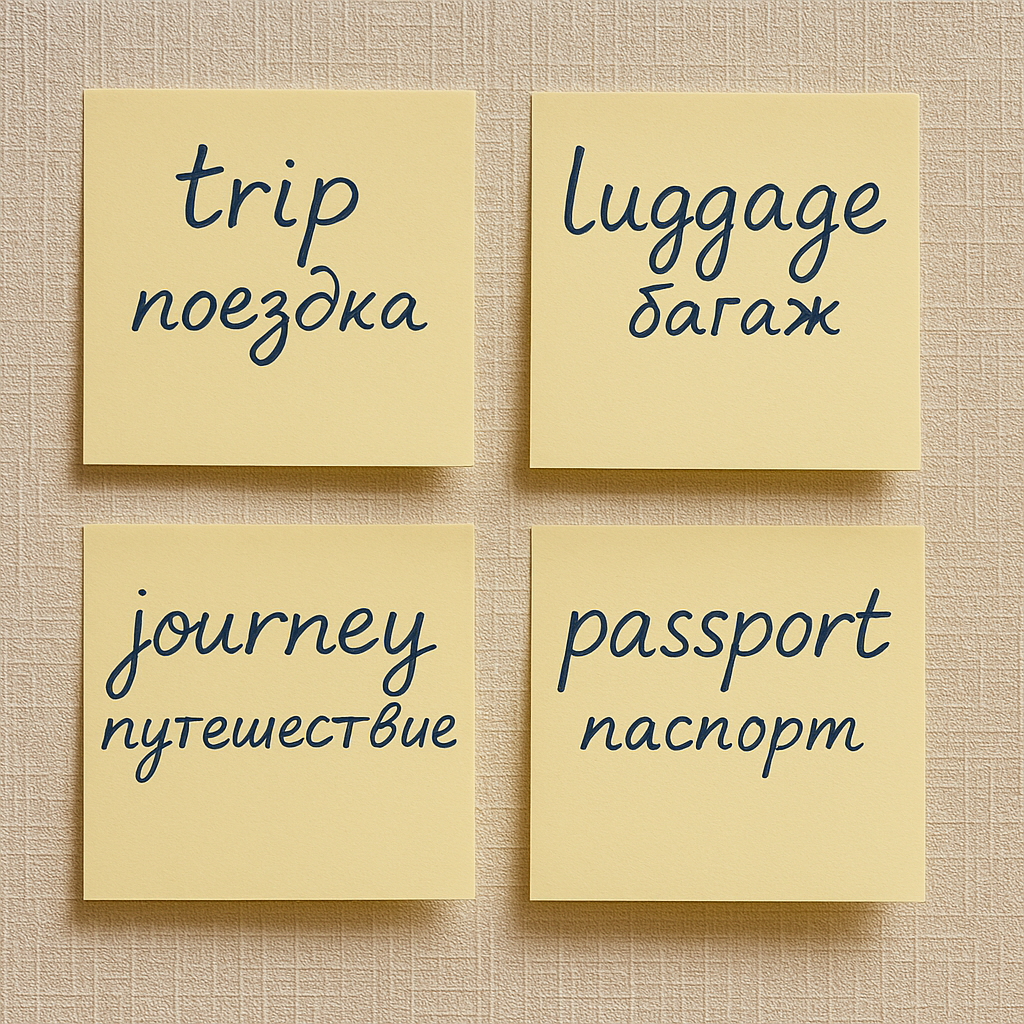 trip
поездка
luggage
багаж
journey
путешествие
passport
паспорт